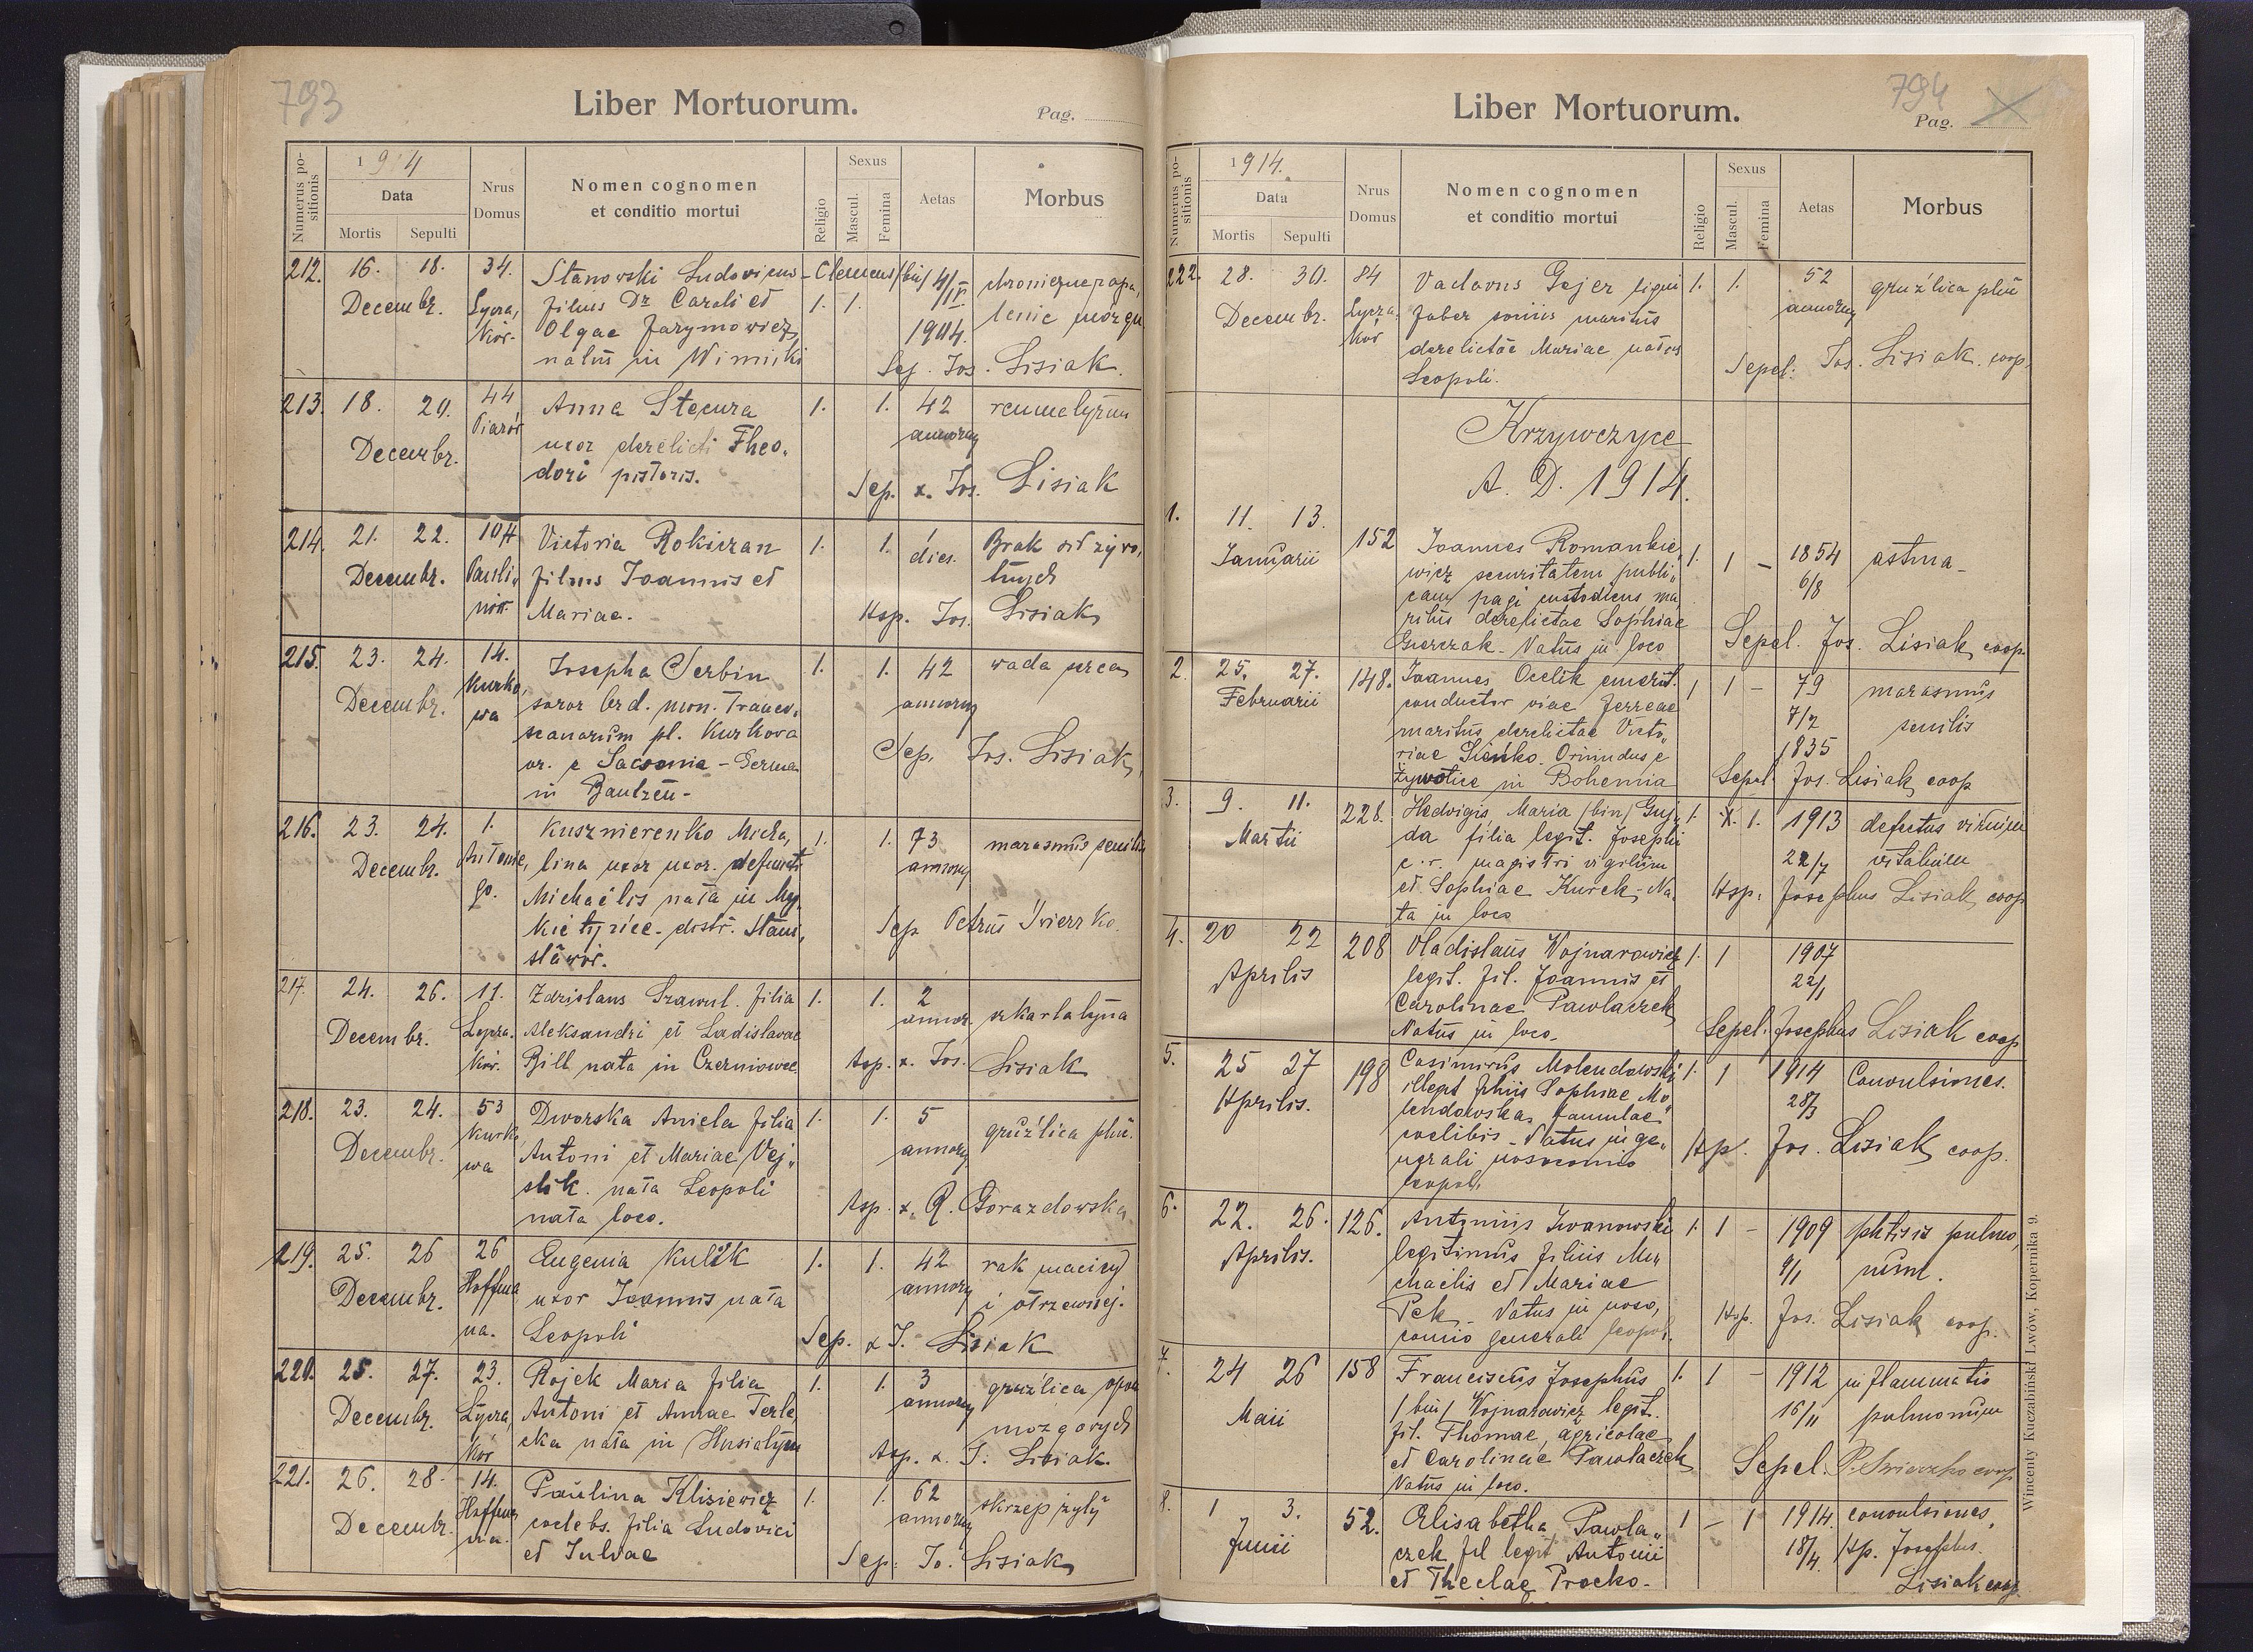 793
Liber Mortuorum.
Pag.
Numerus positionis
1914
Data
Mortis
Sepulti
Nrus Domus
Nomen cognomen
et conditio mortui
Religio
Sexus
Mascul.
Femina
Aetas
Morbus
212. 16. 18. 34. Stanowski Ludovicus - Clemens /bin/ 4/IV
Decembr. filius Dr Caroli et 1. 1.
Kór. Olgae Jarymowicz, 1904.
natus in Winniki Jos. Lisiak.
213. 18. 20. 44 Anna Stecura 1. 1. 42
Decembr. uxor derelicti Theo„ annorum
dori pistoris.
Sep. x. Jos. Lisiak
214. 21. 22. 104 Victoria Rokiczan 1. 1. 1 dies. Brak sił żywo„
Decembr. Pauli„ filius Joannis et tnych
nów. Mariae. Asp. Jos. Lisiak
215. 23. 24. 14. Josepha Serbin 1. 1. 42 wada serca
Decembr. Kurko„ soror ord. mon. Francis„ annorum
wa scanarum pl. Kurkowa
or. e Saxonia - Germa
in Bautzen -
Sep. Jos. Lisiak
216. 23. 24. 1. Kusznierenko Micha„ 1. 1. 73 marasmus senilis
Decembr. Antonie„ lina uxor uxor. defuncti annorum
go. Michaëlis nata in My„
kietyńce distr. Stani„
sławów.
Sep Petrus Świerzko.
217. 24. 26. 11. Zdzislaus Szawul. filia 1. 1. 2 szkarlatyna
Decembr. Łycza. Aleksandri et Ladislavae annor.
Kór. Bill nata in Czerniowce Asp. x. Jos. Lisiak
218. 23. 24. 53 Dworska Aniela filia 1. 1. 5 gruźlica płuc.
Decembr. Kurko wa Antoni et Mariae Wej„ annorum
slik. nata Leopoli
nata loco. Asp. x. R. Gorazdowska
219. 25. 26 26 Eugenia Kulik 1. 1. 42 rak macicy
Decembr. Hoffma uxor Joannis nata annorum i otrzewnej.
na. Leopoli Sep. x J. Lisiak
220. 25. 27. 23. Rojek Maria filia 1. 1. 3 gruźlica opon
Decembr. Łycza„ Antoni et Annae Terle„ annorum mózgowych
Kór cka nata in Husiatyn Asp. x. J. Lisiak.
221. 26. 28. 14. Paulina Klisiewicz 1. 1. 62 skrzep żyły
Decembr. Hoffma na. coelebs. filia Ludovici annorum
et Juliae Sep. Jo. Lisiak
794
Liber Mortuorum.
Pag.
Numerus positionis
1914.
Data
Mortis
Sepulti
Nrus Domus
Nomen cognomen
et conditio mortui
Religio
Sexus
Mascul.
Femina
Aetas
Morbus
222. 28. 30. 84 Vaclavus Gajer ligni 1. 1. 52 gruźlica płuc
Decembr. Łycza. faber maritus annorum
Kór derelictae Mariae natus
Leopoli. Sepel. Jos. Lisiak. coop.
Krzywczyce
A. D. 1914.
1. 11. 13. 152 Joannes Romankie„ 1. 1 - 1854 astma -
Januarii wicz securitatem publi„ 6/8
cam pagi custodiens ma
ritus derelictae Sophiae
Natus in loco Sepel. Jos. Lisiak coop.
2. 25. 27. 148. Joannes Ocelik emerit. 1 1 - 79 marasmus
Februarii conductor viae ferreae 7/2 senilis
maritus derelictae Victo„ 1835
riae Sieńko. Oriundus e
Żywotice in Bohemia Sepel Jos. Lisiak coop
3. 9. 11. 228. Hedvigis Maria /bin/ Guj„ 1. X. 1. 1913 defectus virium
Martii da filia legit. Josephi 22/7 vitalium
c. r. magistri vigilum
et Sophiae Kurek - Na„ Asp: Josephus Lisiak coop
ta in loco
4. 20 22 208 Vladislaus Wojnarowicz 1. 1 1907
Aprilis legit. fil. Joannis et 22/1
Carolinae Pawlaczek
Natus in loco. Sepel. Josephus Lisiak coop
5. 25 27 198 Casimirus Molendowski 1. 1 1914 Convulsiones.
Aprilis. illegit filius Sophiae Mo„ 28/3
lendowska, famulae
coelibis - Natus in ge„ Asp. Jos. Lisiak coop.
nerali nosocomio
leopol.
6. 22. 26. 126. Antonius Iwanowski 1. 1 - 1909 phtisis pulmo„
Aprilis. legitimus filius Mi„ 9/1 num.
chaëlis et Mariae
Pek - Natus in noso„ Asp. Jos. Lisiak coop.
comio generali leopol.
7. 24 26 158 Franciscus Josephus 1. 1 - 1912 inflammatio
Maii /bin/ Wojnarowicz legit. 16/11 pulmonum
fil. Thomae, agricolae
et Carolinae Pawlaczek Sepel. P. Świerzko coop
Natus in loco.
8. 1 3. 52. Elisabetha Pawla„ 1 - 1 1914. convulsiones.
Junii czek fil legit Antonii 18/4 Asp. Josephus.
et Theclae Procko - Lisiak coop.
Wincenty Kuczabiński Lwów, Kopernika 9.